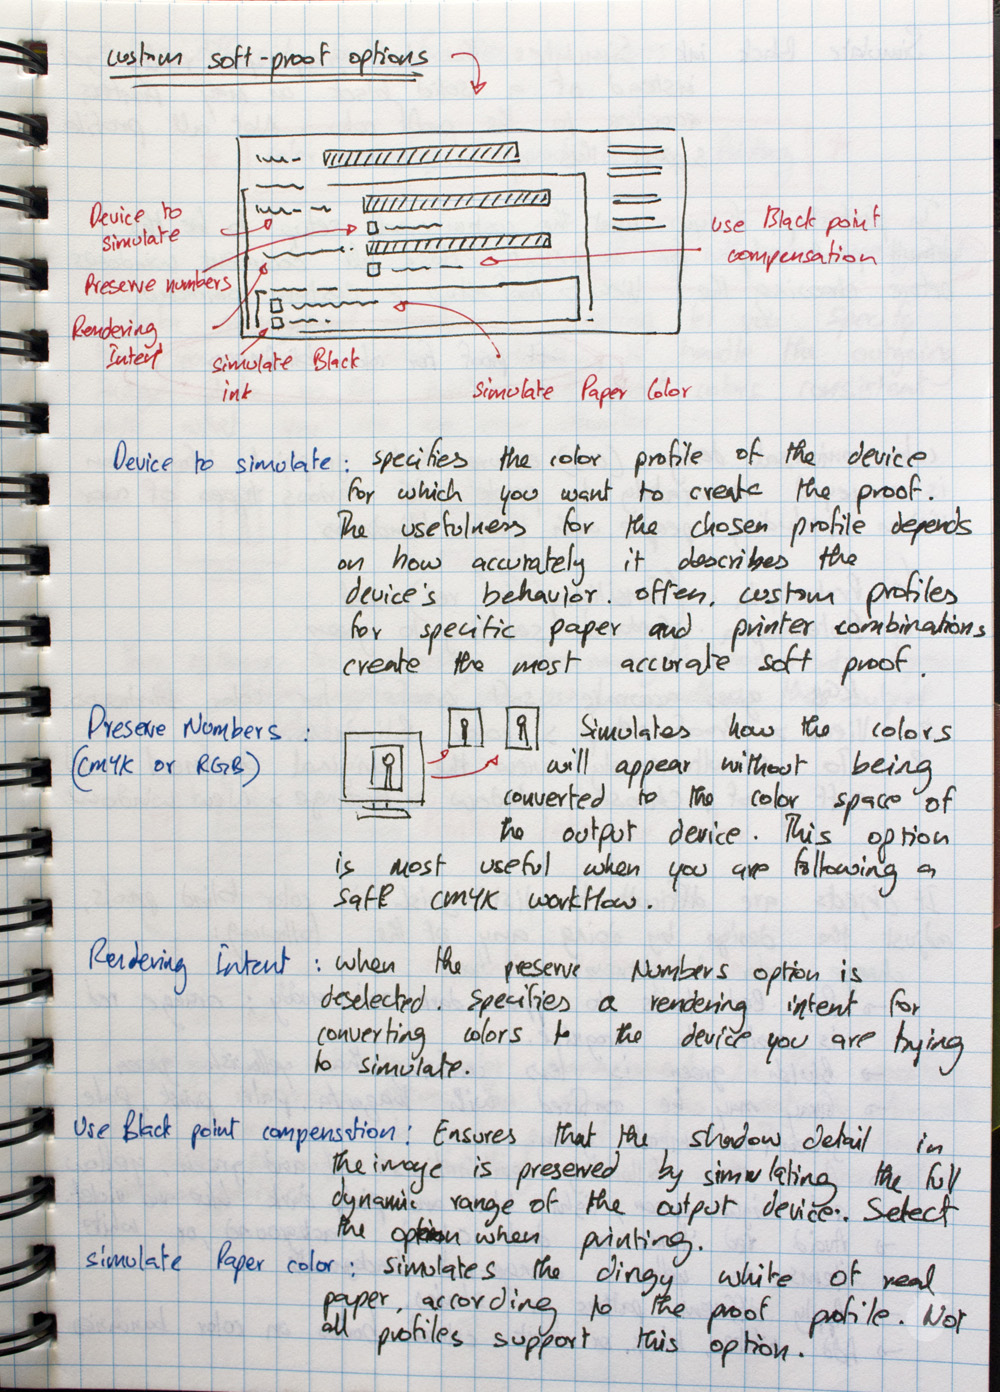 custom soft-proof options
Device to
simulate
Preserve numbers
Rendering
Intent
simulate Black
ink
simulate Paper Color
use Black point
compensation
Device to simulate : specifies the color profile of the device
for which you want to create the proof.
The usefulness for the chosen profile depends
on how accurately it describes the
device's behavior. often, custom profiles
for specific paper and printer combinations
create the most accurate soft proof.
Preserve Numbers :
(CMYK or RGB)
Simulates how the colors
will appear without being
converted to the color space of
the output device. This option
is most useful when you are following a
safe CMYK workflow.
Rendering Intent : when the preserve Numbers option is
deselected. specifies a rendering intent for
converting colors to the device you are trying
to simulate.
use Black point compensation : Ensures that the shadow detail in
the image is preserved by simulating the full
dynamic range of the output device. Select
the option when printing.
simulate Paper color : simulates the dingy white of real
paper, according to the proof profile. Not
all profiles support this option.